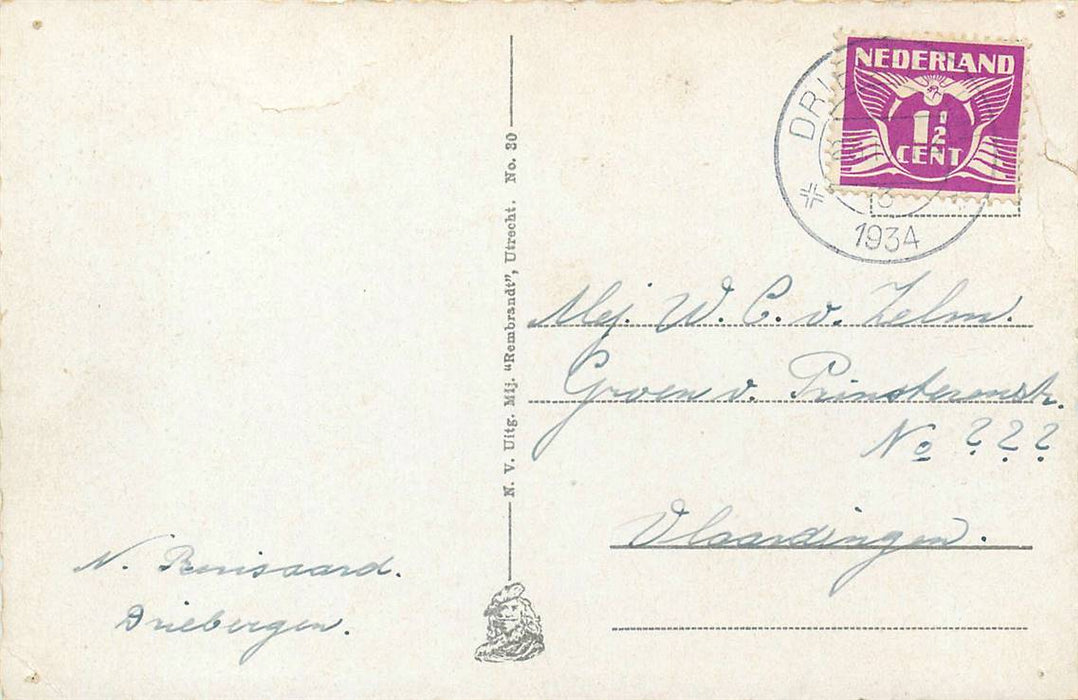 N. V. Uitg. Mij. "Rembrandt", Utrecht. No. 30
NEDERLAND
1½
CENT
DRI
3
1934
Mej. W. C. v. Zelm.
Groen v. Prinstererstr.
No ???
Vlaardingen.
N.
Driebergen.